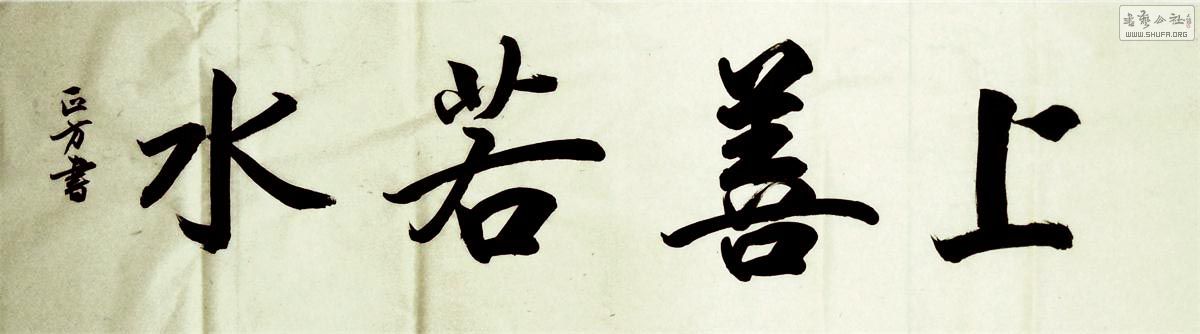 上善若水
正方書
書藝公社
WWW.SHUFA.ORG